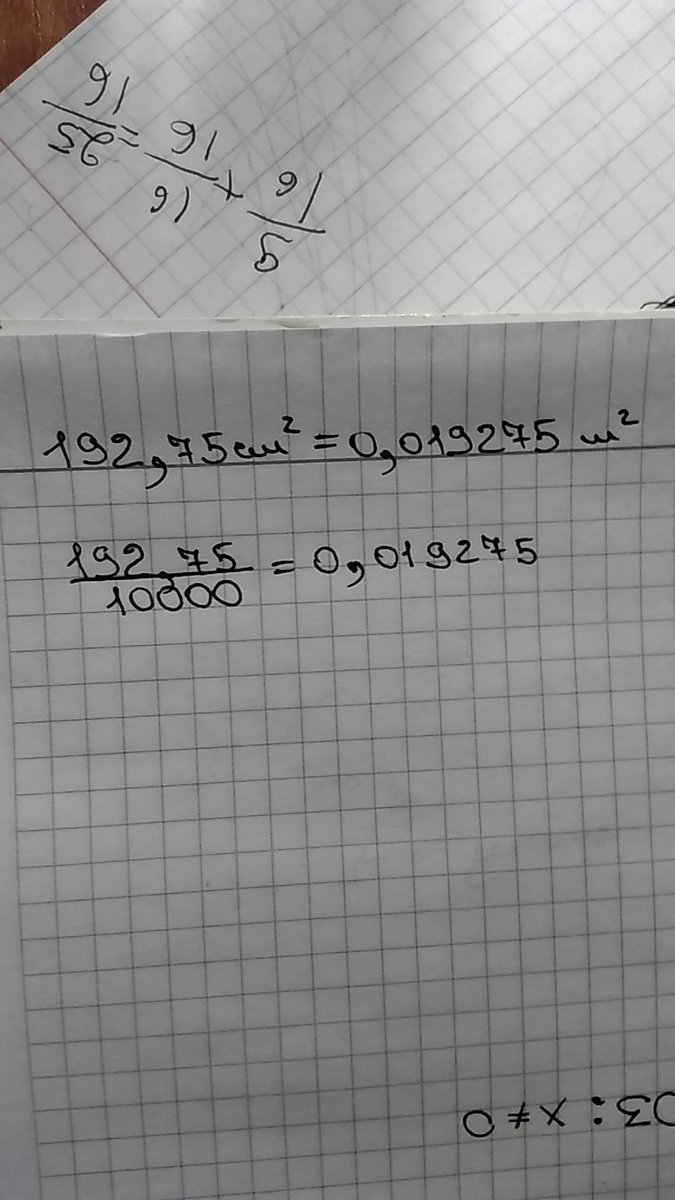 9/16 + 16/16 = 25/16
192,75 см² = 0,019275 м²
192,75/10000 = 0,019275
: x ≠ 0